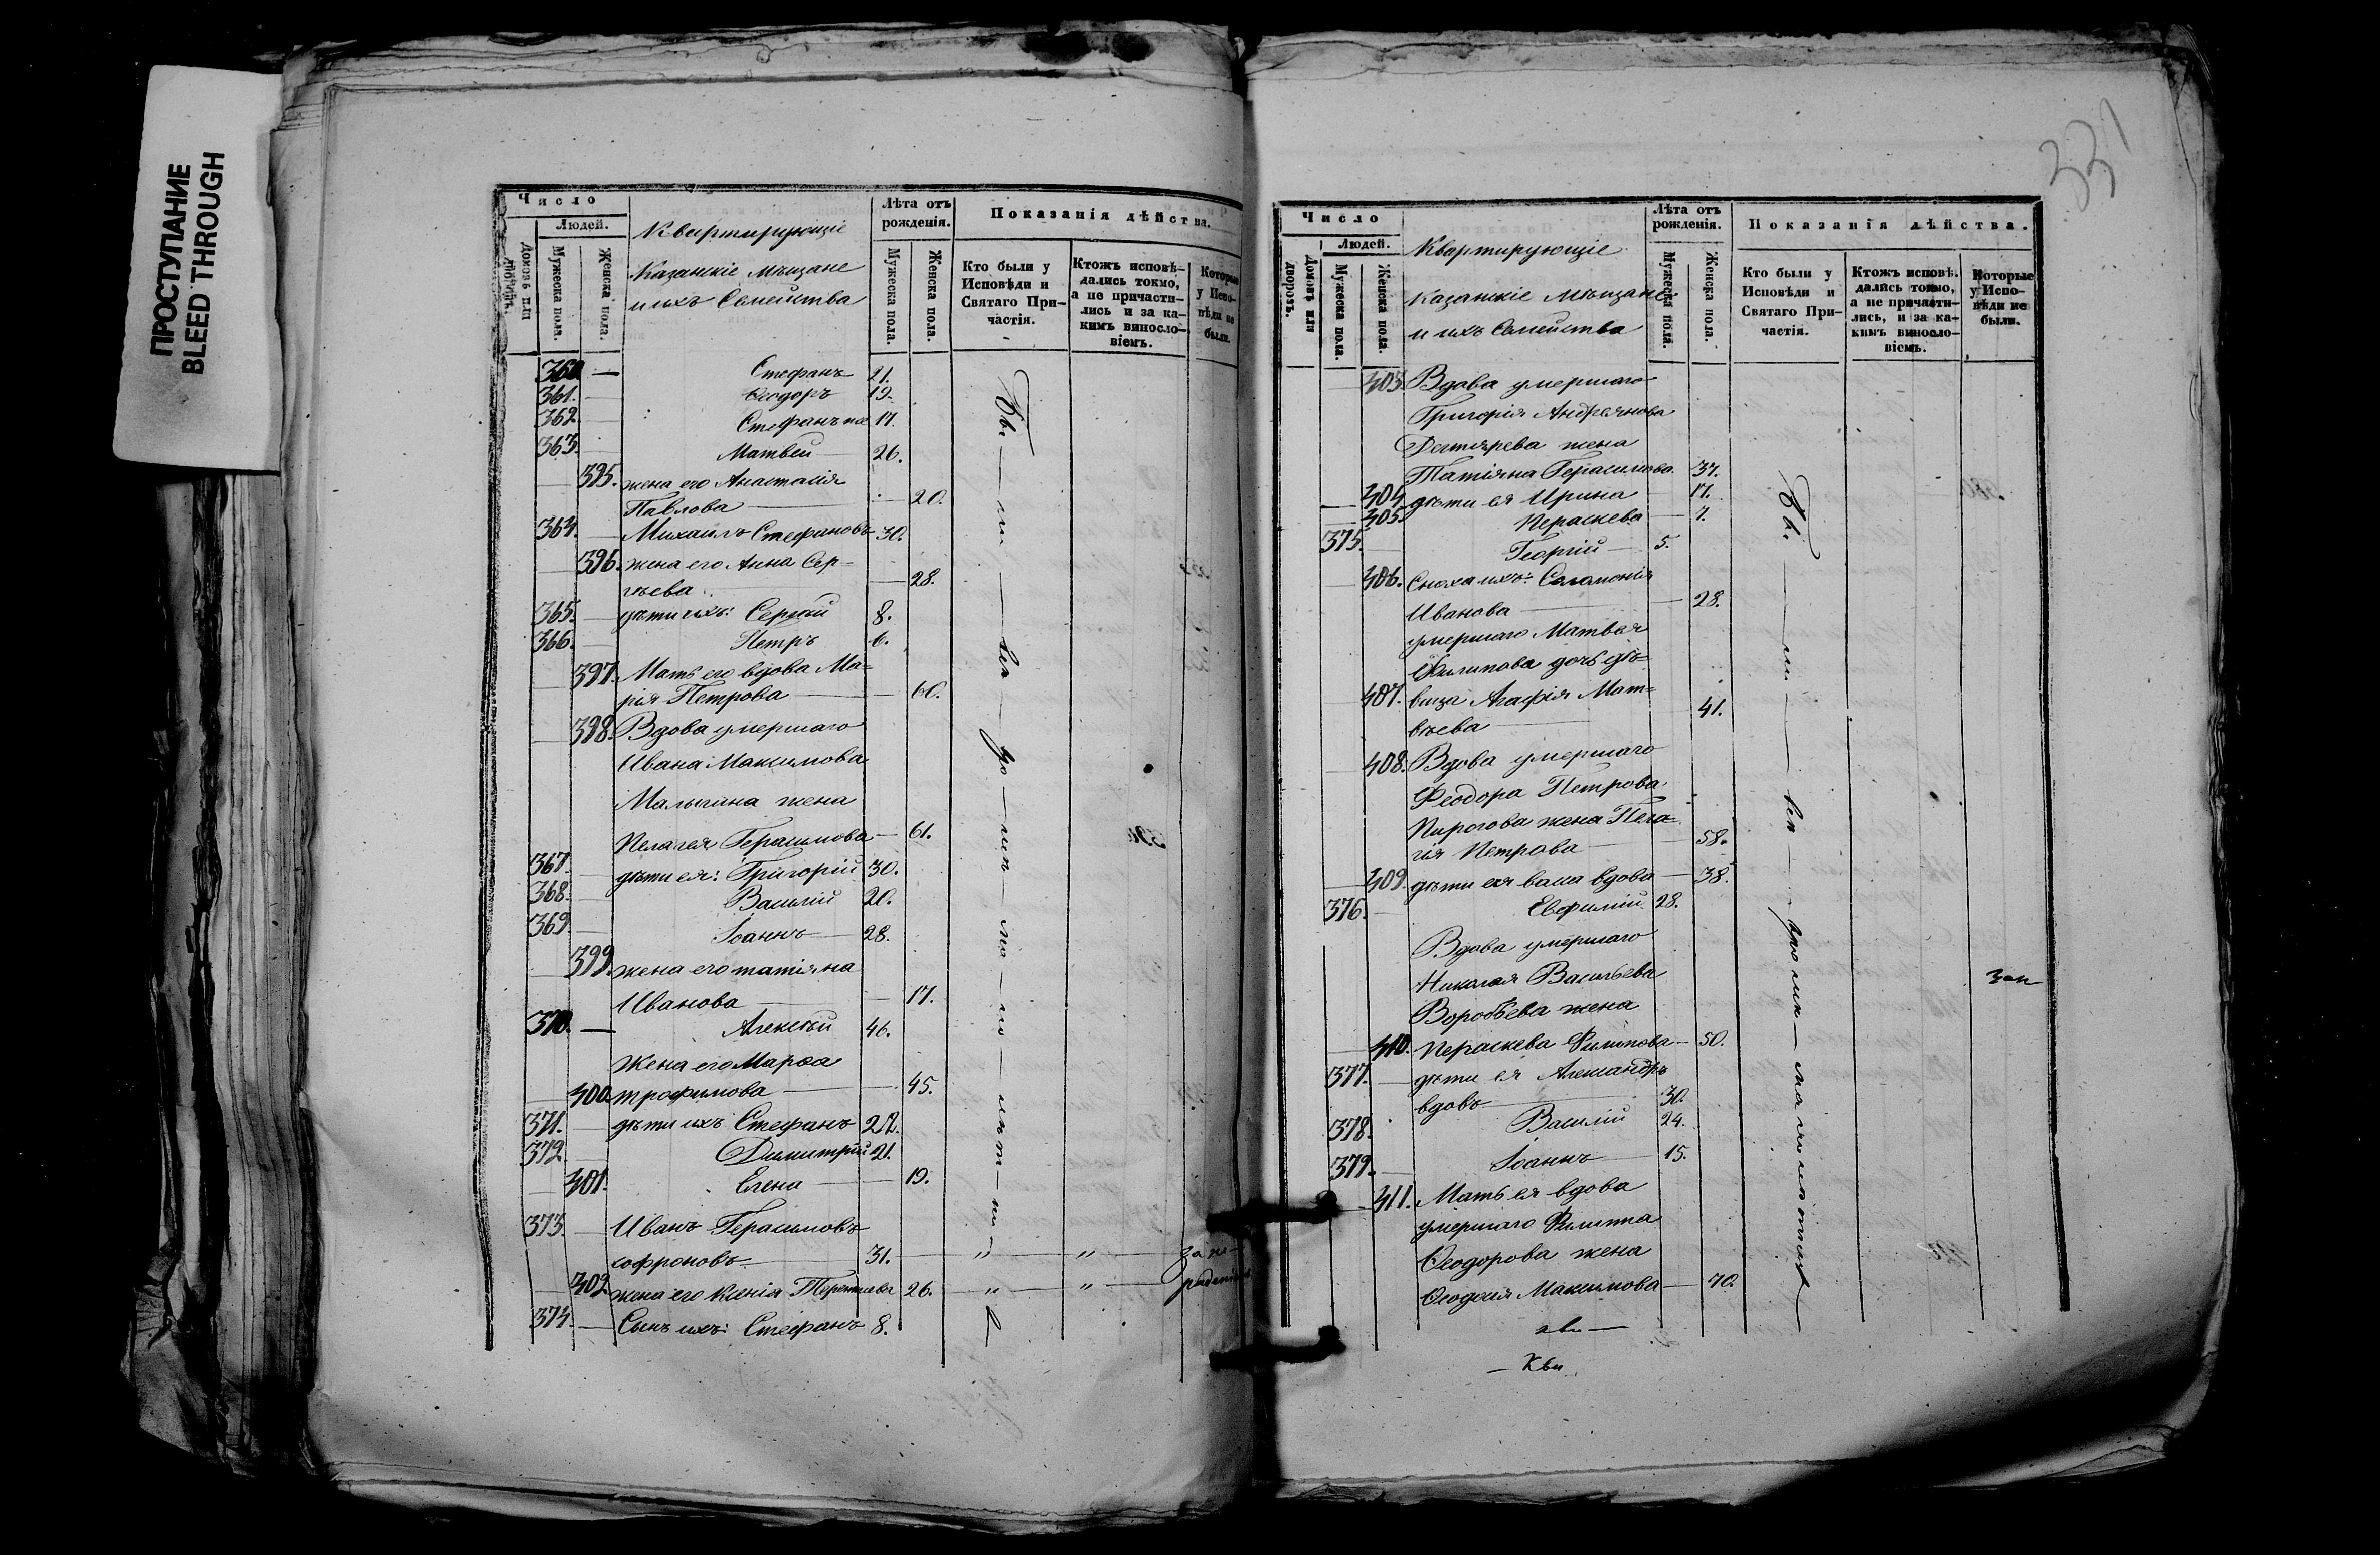 ПРОСТУПАНИЕ
BLEED THROUGH
Число
Людей.
Домовъ или дворовъ.
Мужеска пола.
Женска пола.
Квартирующіе
Казанскіе Мѣщане
и ихъ Семейства
Лѣта отъ рожденія.
Мужеска пола.
Женска пола.
Показанія дѣйства.
Кто были у Исповѣди и Святаго Причастія.
Ктожъ исповѣдались токмо, а не причастились и за какимъ винословіемъ.
Которые у Исповѣди не были.
360. Стефанъ 21.
361. Ѳеодоръ 19.
362. Стефанъ 17.
363. Матвѣй 26.
395. жена его Анастасія
Павлова 20.
364. Михаилъ Стефановъ 30.
396. жена его Анна Сер=
гѣева 28.
365. дѣти ихъ: Сергѣй 8.
366. Петръ 6.
397. Мать его вдова Ма=
рія Петрова 60.
398. Вдова умершаго
Ивана Максимова
Малыгина жена
Пелагея Герасимова 61.
367. дѣти ея: Григорій 30.
368. Василій 20.
369. Іоаннъ 28.
399. жена его татіяна
Иванова 17.
370. Алексѣй 46.
Жена его Марѳа
400. трофимова 45.
371. дѣти ихъ Стефанъ 22.
372. Димитрій 21.
401. Елена 19.
373. Иванъ Герасимовъ
софроновъ 31. " "
402. жена его Ксенія Терентиева 26. " "
374. Сынъ ихъ: Стефанъ 8.
331
Число
Людей.
Домовъ или дворовъ.
Мужеска пола.
Женска пола.
Квартирующіе
Казанскіе Мѣщане
и ихъ Семейства
Лѣта отъ рожденія.
Мужеска пола.
Женска пола.
Показанія дѣйства.
Кто были у Исповѣди и Святаго Причастія.
Ктожъ исповѣдались токмо, а не причастились, и за какимъ винословіемъ.
Которые у Исповѣди не были.
403. Вдова умершаго
Григорія Андреянова
Дегтярева жена
Татіяна Герасимова 37.
404. дѣти ея Ирина 17.
405. Параскева 7.
375. Георгій 5.
406. Сноха ихъ: Саламонія
Иванова 28.
умершаго Матвѣя
Филипова дочь дѣ=
407. вица Агафія Мат=
вѣева 41.
408. Вдова умершаго
Феодора Петрова
Пирогова жена Пела=
гія Петрова 58.
409. дѣти ея васса вдова 38.
376. Евфимій 28.
Вдова умершаго
Николая Васильева
Воробьева жена
410. Параскева Филипова 50.
377. дѣти ея Александръ
вдовъ 30.
378. Василій 24.
379. Іоаннъ 15.
411. Мать ея вдова
умершаго Филиппа
Ѳеодорова жена
Ѳеодосія Максимова 70.